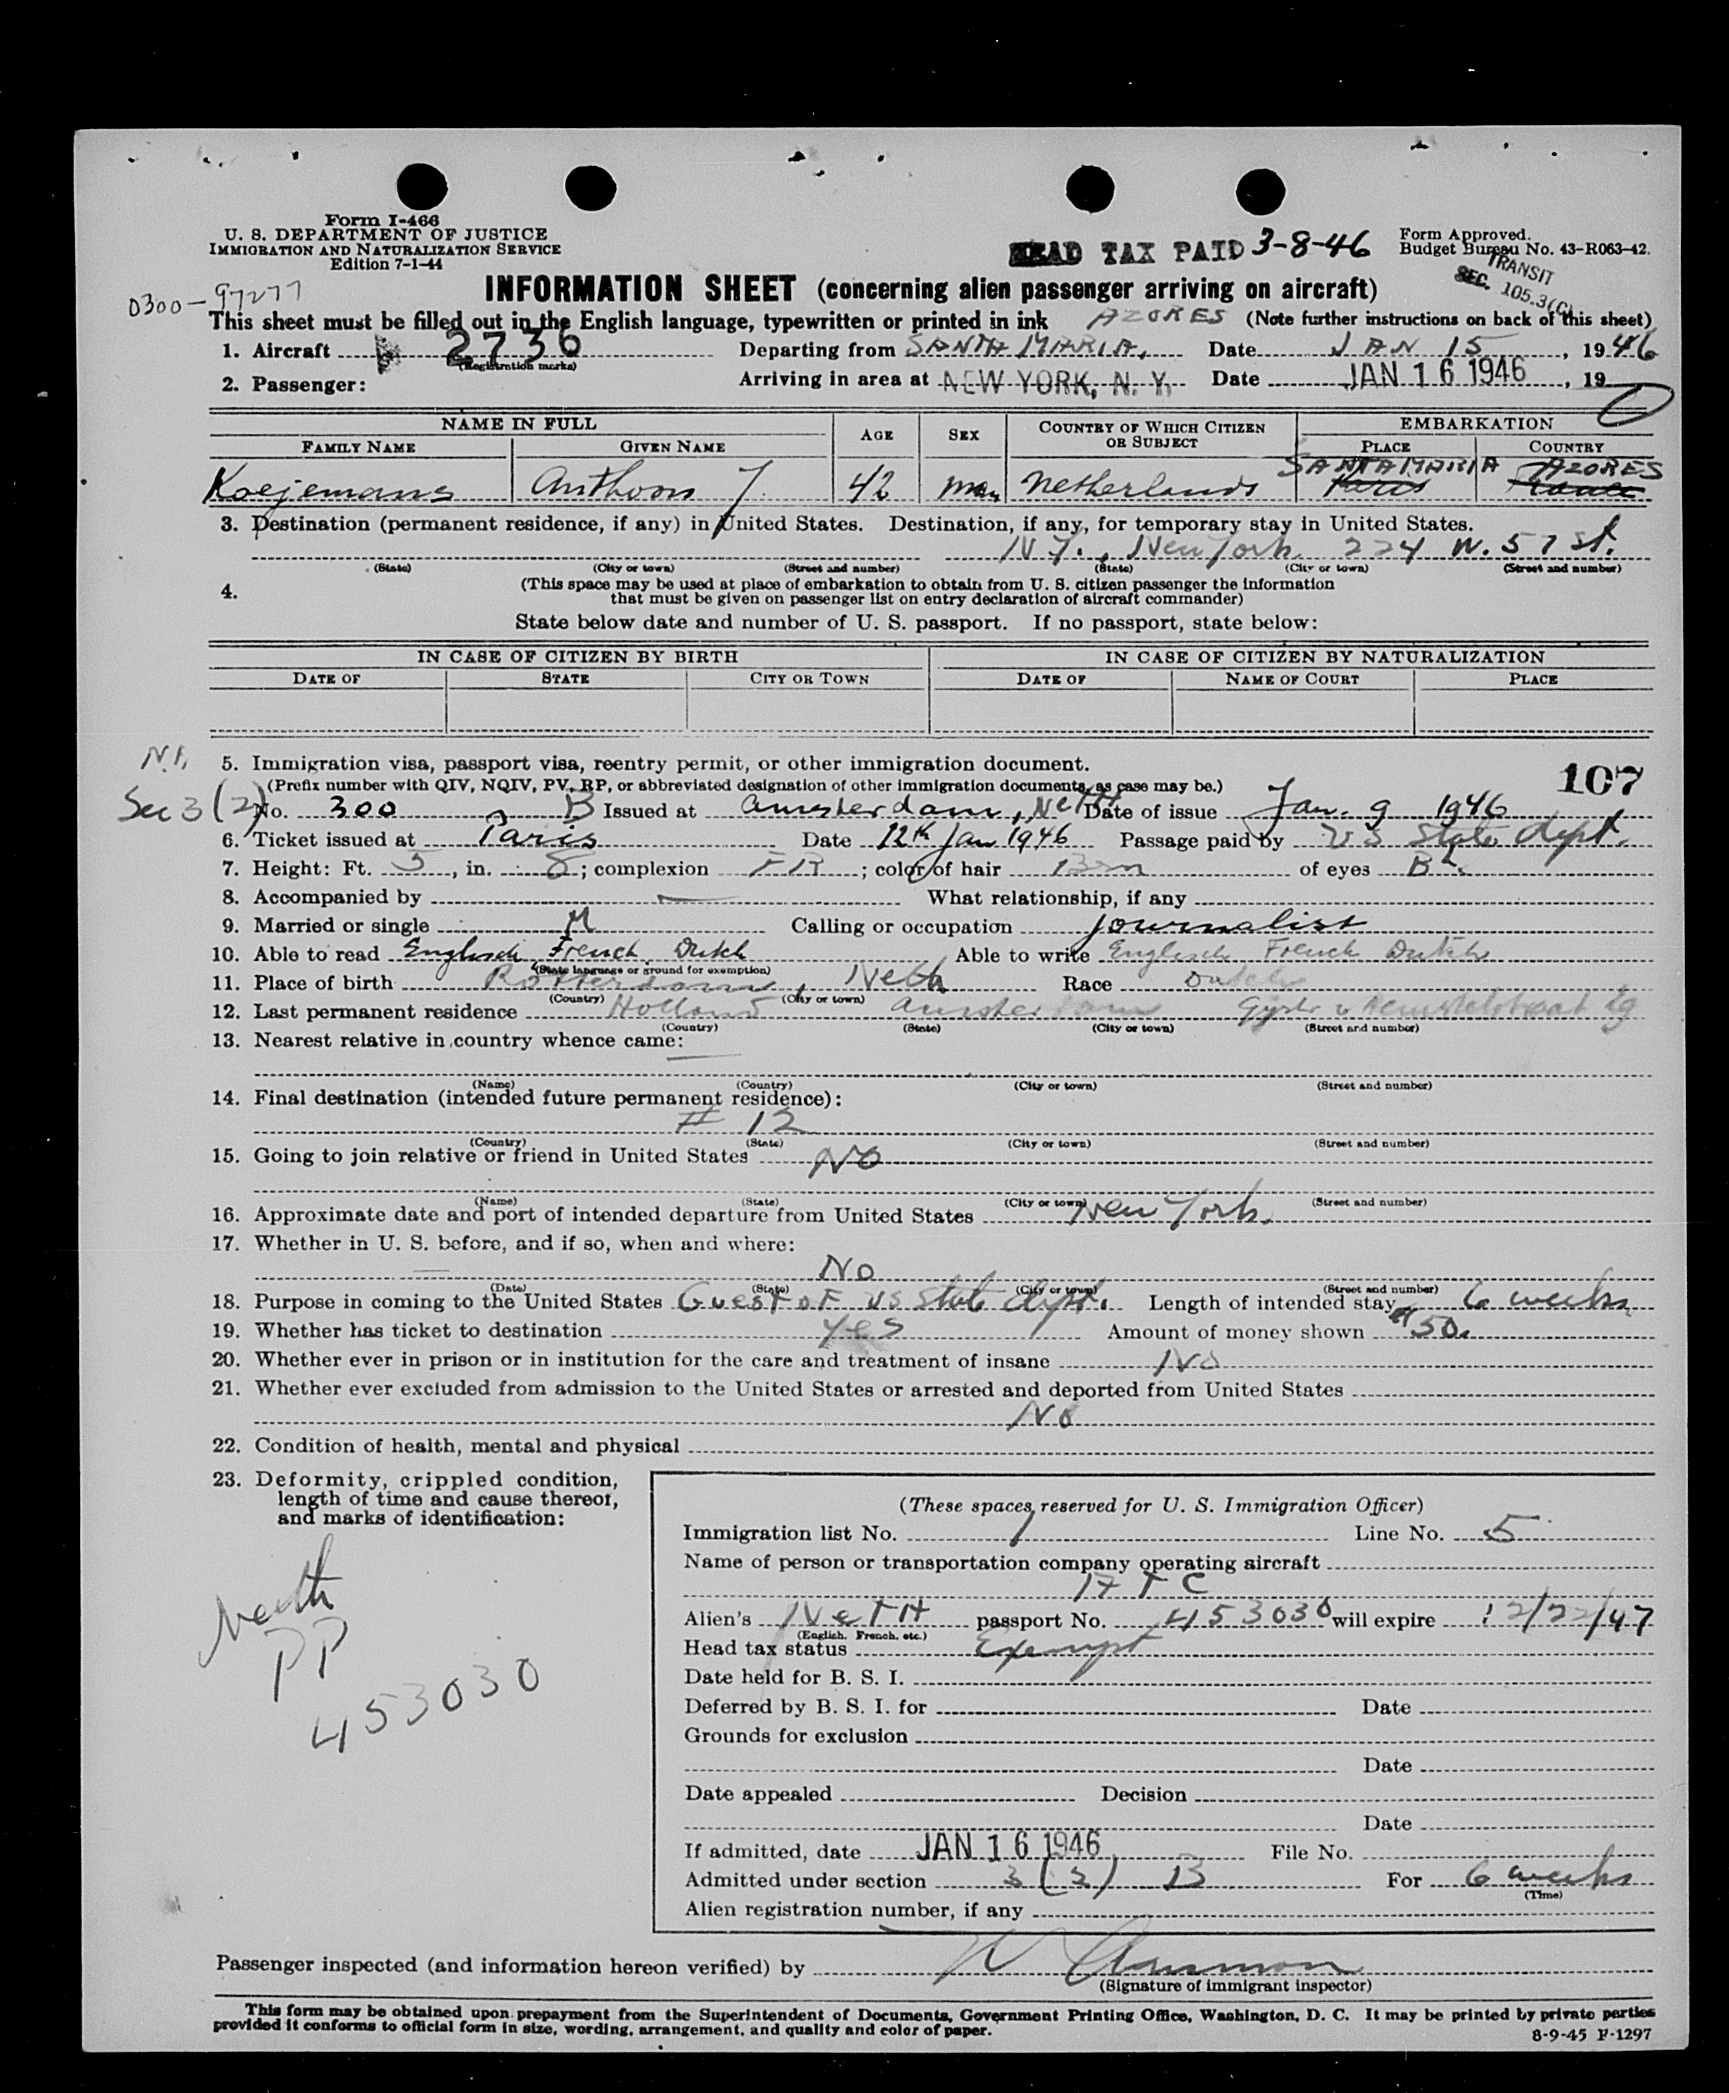 Form I-466
U. S. DEPARTMENT OF JUSTICE
IMMIGRATION AND NATURALIZATION SERVICE
Edition 7-1-44
HEAD TAX PAID 3-8-46
Form Approved.
Budget Bureau No. 43-R063-42.
TRANSIT
SEC. 105.3(C)
0300-97277
INFORMATION SHEET (concerning alien passenger arriving on aircraft)
This sheet must be filled out in the English language, typewritten or printed in ink AZORES (Note further instructions on back of this sheet)
1. Aircraft 2736 Departing from SANTA MARIA, Date JAN 15, 1946
(Registration marks)
2. Passenger: Arriving in area at NEW YORK, N. Y. Date JAN 16 1946, 19
NAME IN FULL AGE SEX COUNTRY OF WHICH CITIZEN OR SUBJECT EMBARKATION
FAMILY NAME GIVEN NAME PLACE COUNTRY
SANTA MARIA AZORES
Koejemans Anthoon J. 42 man Netherlands Paris France
3. Destination (permanent residence, if any) in United States. Destination, if any, for temporary stay in United States.
N.Y., New York 224 W. 57 St.
(State) (City or town) (Street and number) (State) (City or town) (Street and number)
4. (This space may be used at place of embarkation to obtain from U. S. citizen passenger the information
that must be given on passenger list on entry declaration of aircraft commander)
State below date and number of U. S. passport. If no passport, state below:
IN CASE OF CITIZEN BY BIRTH IN CASE OF CITIZEN BY NATURALIZATION
DATE OF STATE CITY OR TOWN DATE OF NAME OF COURT PLACE
N.I.
5. Immigration visa, passport visa, reentry permit, or other immigration document.
107
(Prefix number with QIV, NQIV, PV, RP, or abbreviated designation of other immigration documents, as case may be.)
Sec 3 (2) No. 300 B Issued at Amsterdam, NETH Date of issue Jan. 9 1946
6. Ticket issued at Paris Date 12th Jan 1946 Passage paid by US State dept.
7. Height: Ft. 5, in. 8; complexion FR; color of hair Brn of eyes Bl.
8. Accompanied by — What relationship, if any
9. Married or single M Calling or occupation journalist
10. Able to read Englisch French Dutch Able to write Englisch French Dutch
(State language or ground for exemption)
11. Place of birth Rotterdam, Neth Race Dutch
(Country) (City or town)
12. Last permanent residence Holland Amsterdam
(Country) (State) (City or town) (Street and number)
13. Nearest relative in country whence came: —
(Name) (Country) (City or town) (Street and number)
14. Final destination (intended future permanent residence):
# 12
(Country) (State) (City or town) (Street and number)
15. Going to join relative or friend in United States NO
(Name) (State) (City or town) (Street and number)
16. Approximate date and port of intended departure from United States New York.
17. Whether in U. S. before, and if so, when and where:
— No
(Date) (State) (City or town) (Street and number)
18. Purpose in coming to the United States Guest of US State dept. Length of intended stay 6 weeks
19. Whether has ticket to destination Yes Amount of money shown $50.
20. Whether ever in prison or in institution for the care and treatment of insane No
21. Whether ever excluded from admission to the United States or arrested and deported from United States
No
22. Condition of health, mental and physical
23. Deformity, crippled condition,
length of time and cause thereof,
and marks of identification:
Neth
PP
453030
(These spaces reserved for U. S. Immigration Officer)
Immigration list No. 1 Line No. 5
Name of person or transportation company operating aircraft
ATC
Alien's NETH passport No. 453030 will expire 12/22/47
(English, French, etc.)
Head tax status Exempt
Date held for B. S. I.
Deferred by B. S. I. for Date
Grounds for exclusion
Date
Date appealed Decision
Date
If admitted, date JAN 16 1946 File No.
Admitted under section 3 (2) B For 6 weeks
(Time)
Alien registration number, if any
Passenger inspected (and information hereon verified) by
(Signature of immigrant inspector)
This form may be obtained upon prepayment from the Superintendent of Documents, Government Printing Office, Washington, D. C. It may be printed by private parties
provided it conforms to official form in size, wording, arrangement, and quality and color of paper.
8-9-45 P-1297